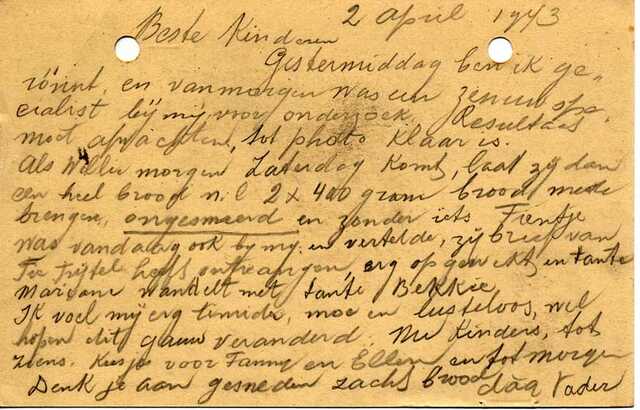 2 april 1943
Beste Kinderen
Gistermiddag ben ik ge-
röhnt, en vanmorgen was een zenuwspe-
cialist bij mij voor onderzoek. Resultaat
moet afwachten, tot photo klaar is.
Als Willy morgen Zaterdag komt, laat zij dan
een heel brood n.l. 2 x 400 gram brood mede
brengen, ongesmeerd en zonder iets Fientje
was vandaag ook bij mij en vertelde, zij brief van
heeft ontvangen, erg opgewekt en tante
Marianne wandelt met tante Bekkie
Ik voel mij erg timide, moe en lusteloos, wel
hopen dit gauw veranderd. Nu Kinders, tot
ziens. Kusjes voor Fanny en Ellen en tot morgen
Denk je aan gesneden zacht brood dag Vader